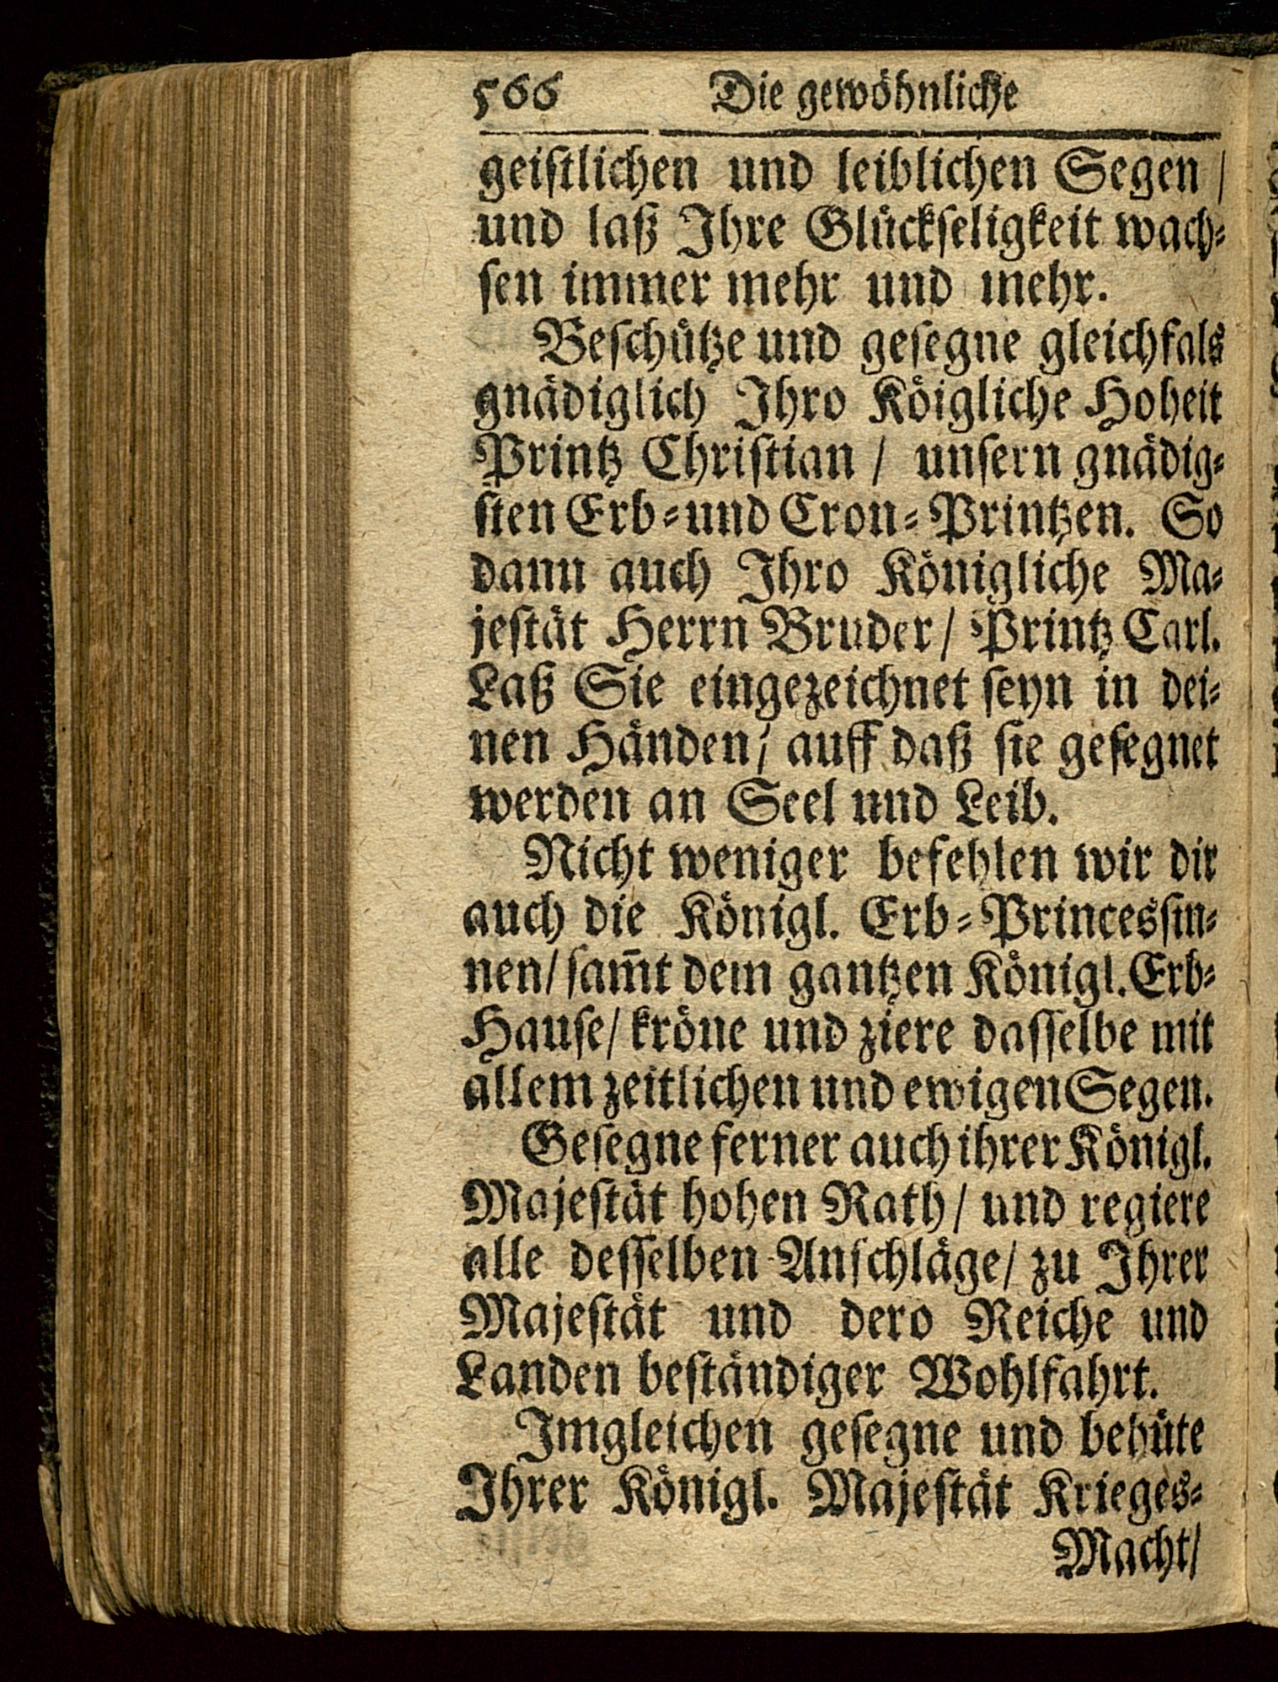 566 Die gewöhnliche
geistlichen und leiblichen Segen /
und laß Ihre Glückseligkeit wach⸗
sen immer mehr und mehr.
Beschütze und gesegne gleichfals
gnädiglich Ihro Köigliche Hoheit
Printz Christian / unsern gnädig⸗
sten Erb⸗und Cron⸗Printzen. So
dann auch Ihro Königliche Ma⸗
jestät Herrn Bruder / Printz Carl.
Laß Sie eingezeichnet seyn in dei⸗
nen Händen / auff daß sie gesegnet
werden an Seel und Leib.
Nicht weniger befehlen wir dir
auch die Königl. Erb⸗Princessin⸗
nen / sam̃t dem gantzen Königl. Erb⸗
Hause / kröne und ziere dasselbe mit
allem zeitlichen und ewigen Segen.
Gesegne ferner auch ihrer Königl.
Majestät hohen Rath / und regiere
alle desselben Anschläge / zu Ihrer
Majestät und dero Reiche und
Landen beständiger Wohlfahrt.
Imgleichen gesegne und behüte
Ihrer Königl. Majestät Krieges⸗
Macht /